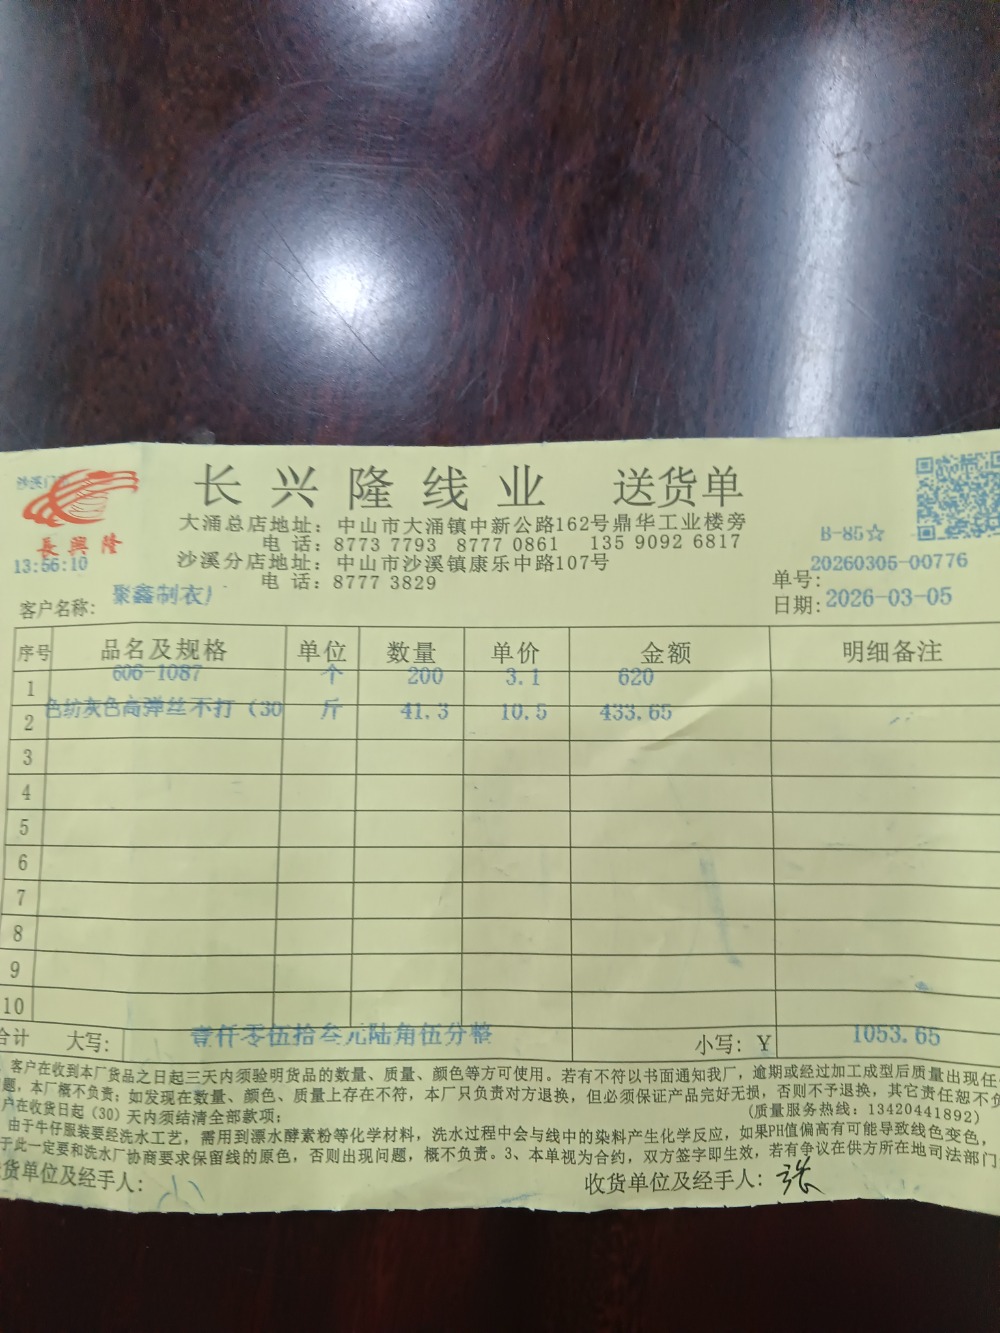 沙溪门
長興隆
13:56:10
长兴隆线业 送货单
大涌总店地址：中山市大涌镇中新公路162号鼎华工业楼旁
电 话：8773 7793 8777 0861 135 9092 6817
沙溪分店地址：中山市沙溪镇康乐中路107号
电 话：8777 3829
B-85☆
单号：20260305-00776
日期：2026-03-05
客户名称：聚鑫制衣
序号 品名及规格 单位 数量 单价 金额 明细备注
1 606-1087 个 200 3.1 620
2 色纺灰色高弹丝不打（30 斤 41.3 10.5 433.65
3
4
5
6
7
8
9
10
合计 大写：壹仟零伍拾叁元陆角伍分整 小写：Y 1053.65
客户在收到本厂货品之日起三天内须验明货品的数量、质量、颜色等方可使用。若有不符以书面通知我厂，逾期或经过加工成型后质量出现任
题，本厂概不负责；如发现在数量、颜色、质量上存在不符，本厂只负责对方退换，但必须保证产品完好无损，否则不予退换，其它责任恕不负
户在收货日起（30）天内须结清全部款项； （质量服务热线：13420441892）
由于牛仔服装要经洗水工艺，需用到漂水酵素粉等化学材料，洗水过程中会与线中的染料产生化学反应，如果PH值偏高有可能导致线色变色，
于此一定要和洗水厂协商要求保留线的原色，否则出现问题，概不负责。3、本单视为合约，双方签字即生效，若有争议在供方所在地司法部门
货单位及经手人： 收货单位及经手人：张